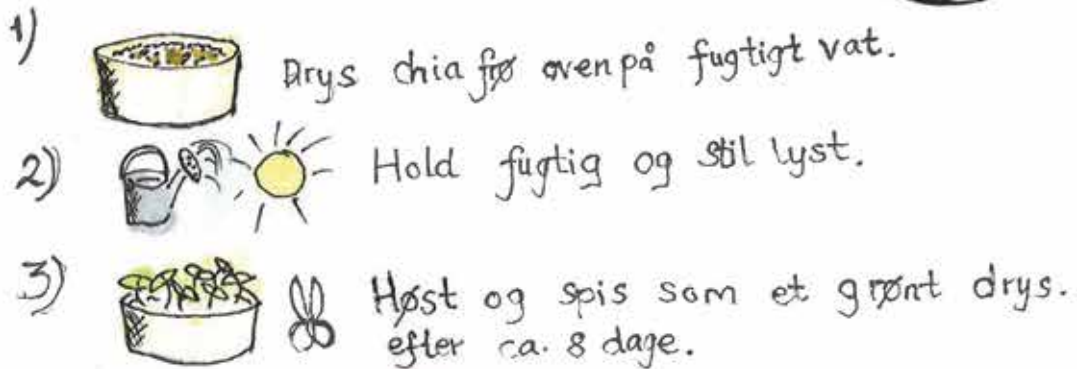 1) Drys chia frø ovenpå fugtigt vat.
2) Hold fugtig og stil lyst.
3) Høst og spis som et grønt drys.
efter ca. 8 dage.